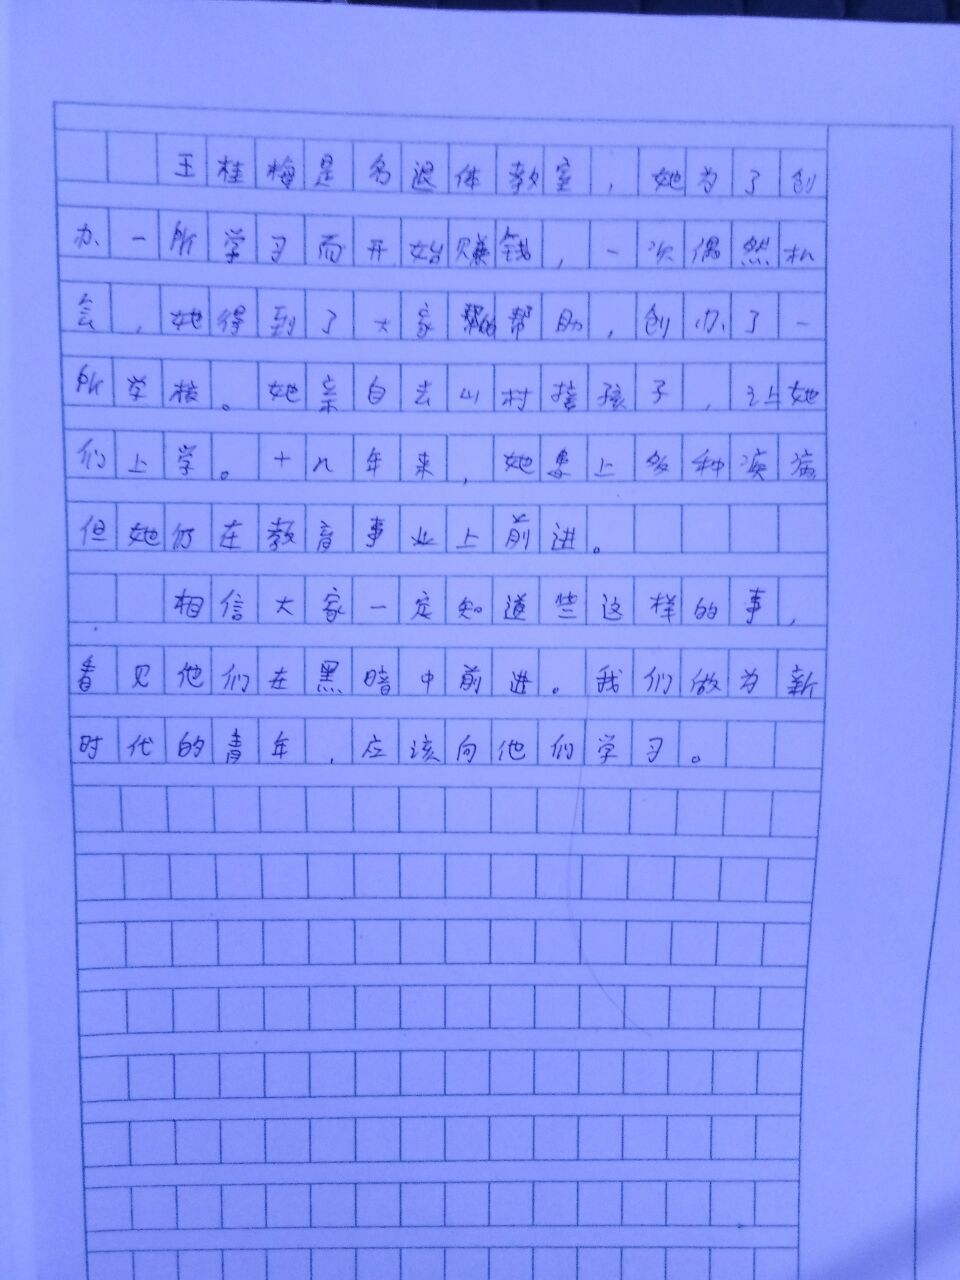 王桂梅是名退体教室，她为了创
办一所学习而开始赚钱，一次偶然机
会，她得到了大家的帮助，创办了一
所学校。她亲自去山村接孩子，让她
们上学。十几年来，她患上多种疾病
但她仍在教育事业上前进。
相信大家一定知道些这样的事，
看见他们在黑暗中前进。我们做为新
时代的青年，应该向他们学习。